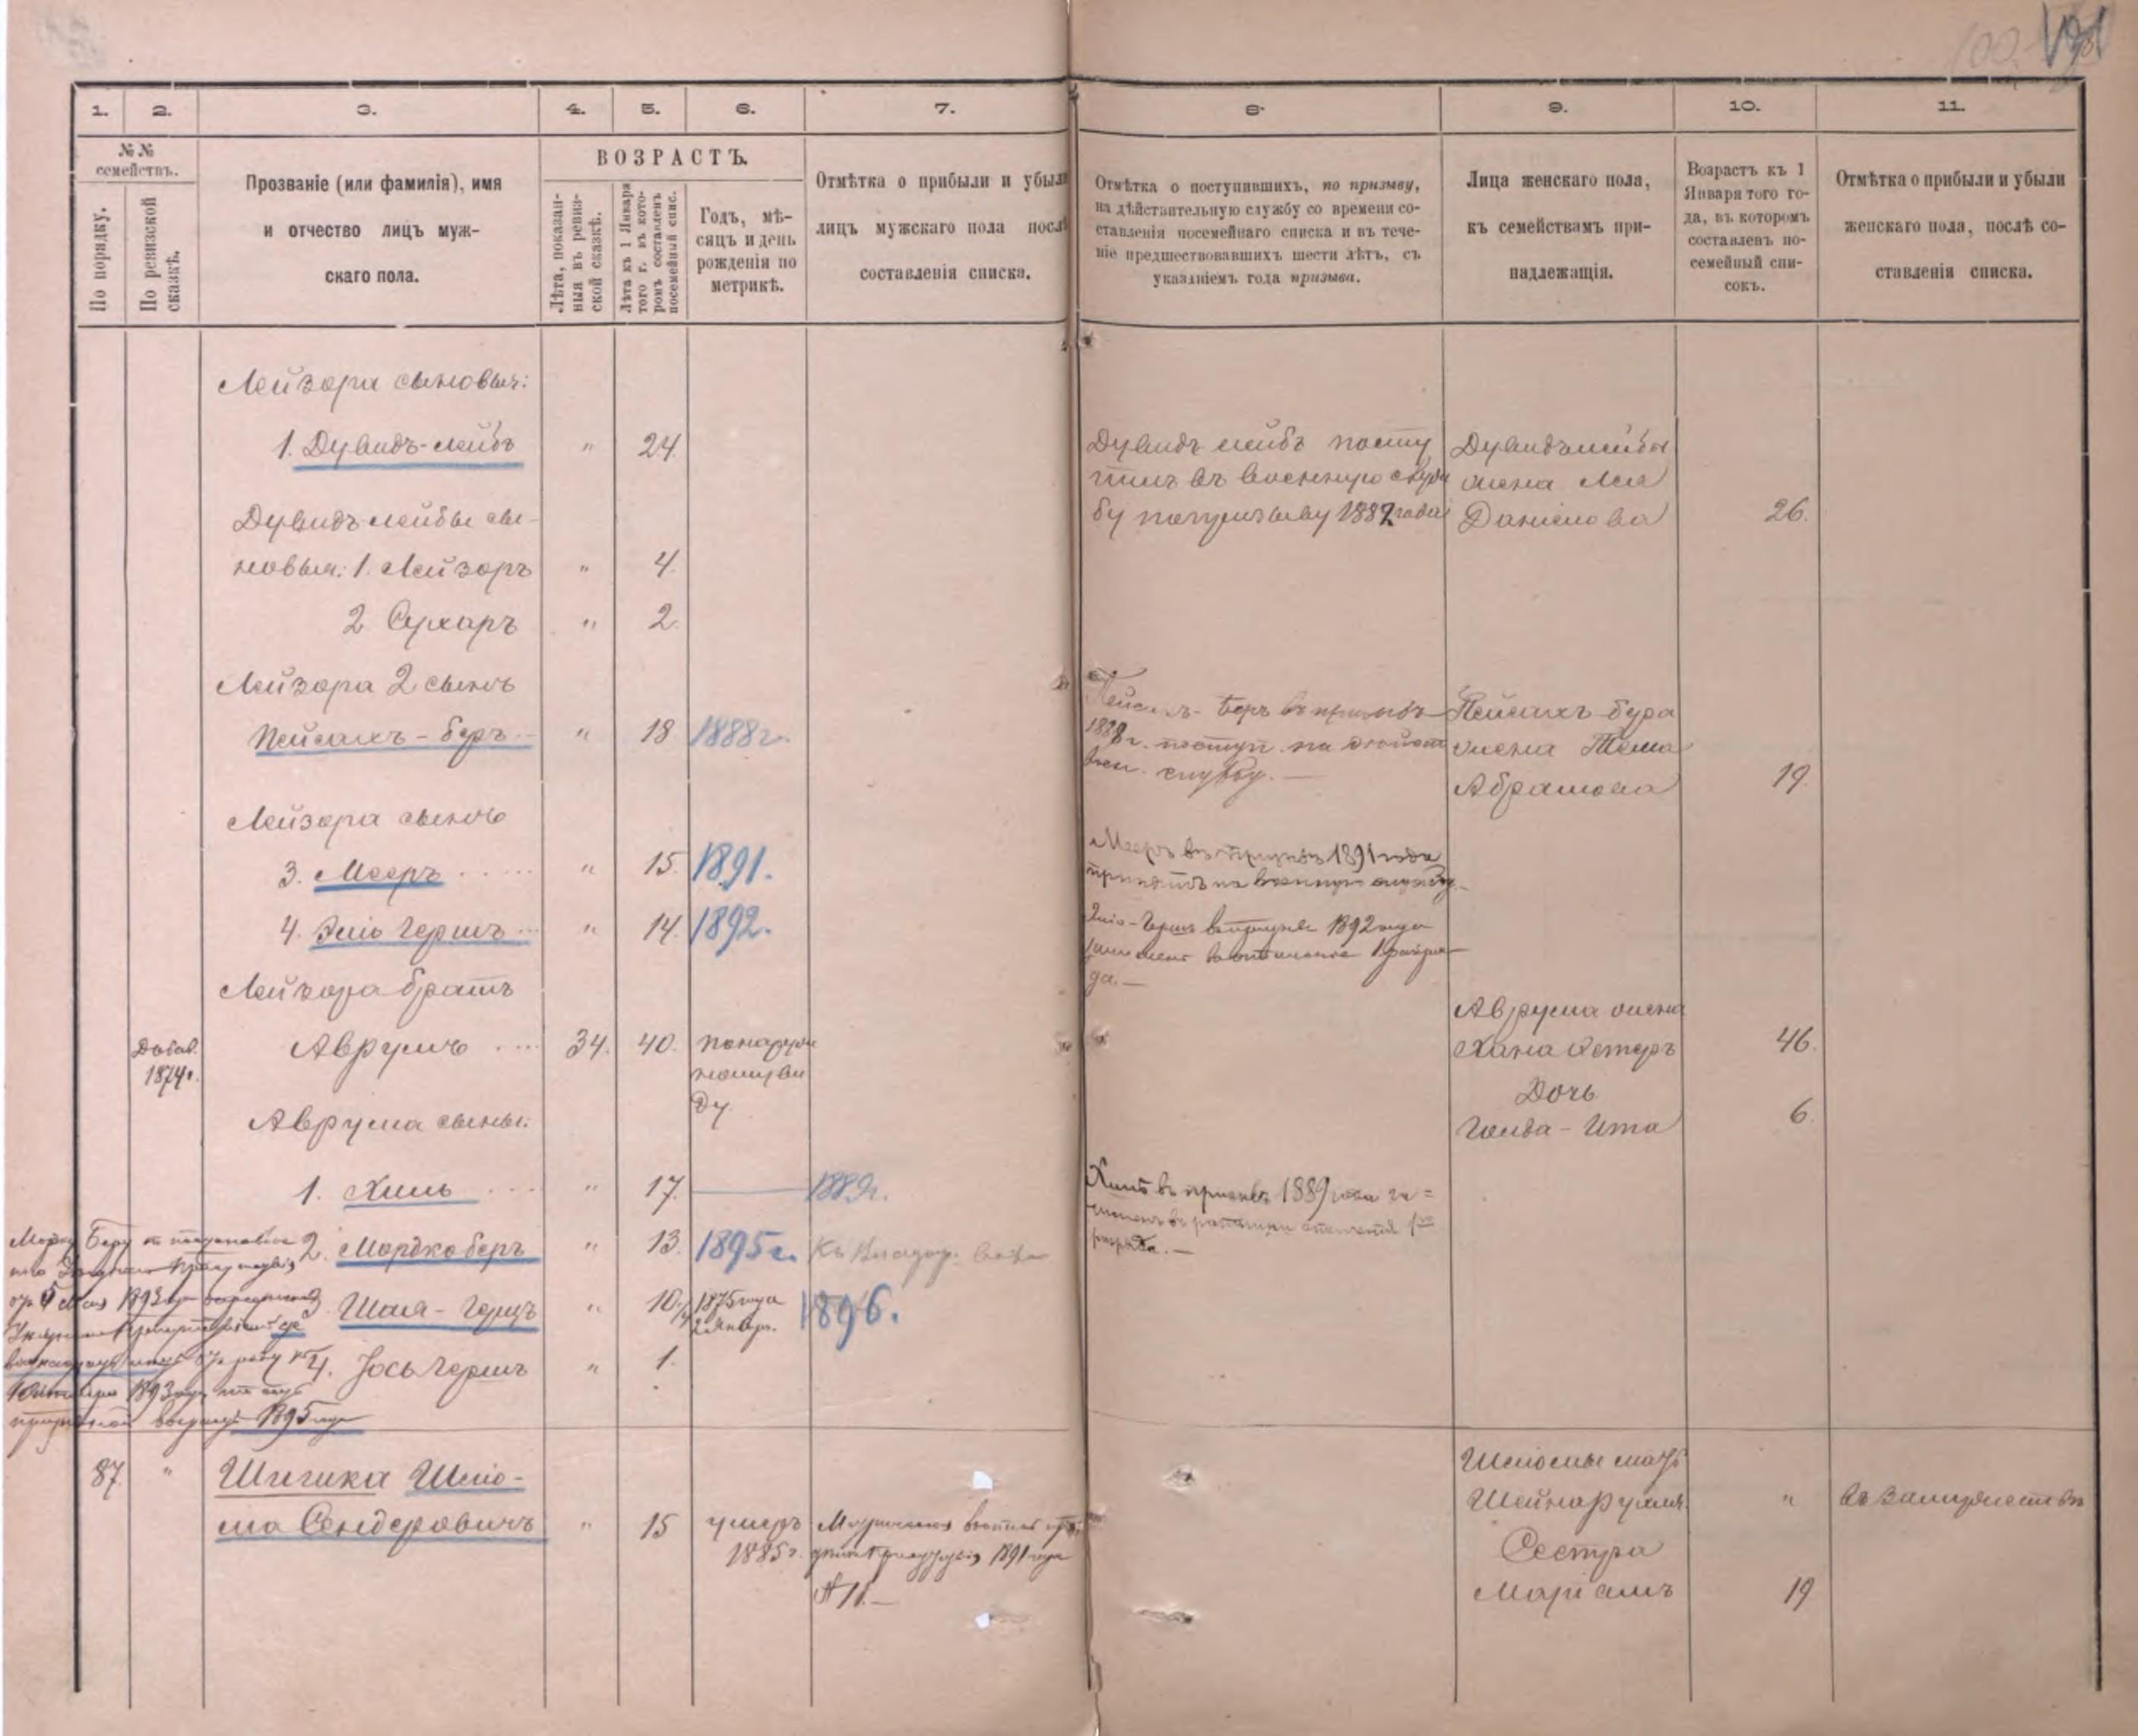 1.
2.
3.
4.
5.
6.
7.
8.
9.
10.
11.
№№
семействъ.
По порядку.
По ревизской
сказкѣ.
Прозваніе (или фамилія), имя
и отчество лицъ муж-
скаго пола.
ВОЗРАСТЪ.
Лѣта, показан-
ныя въ ревиз-
ской сказкѣ.
Лѣта къ 1 Января
того г. въ кото-
ромъ составленъ
посемейный спис.
Годъ, мѣ-
сяцъ и день
рожденія по
метрикѣ.
Отмѣтка о прибыли и убыли
лицъ мужскаго пола послѣ
составленія списка.
Отмѣтка о поступившихъ, по призыву,
на дѣйствительную службу со времени со-
ставленія посемейнаго списка и въ тече-
ніе предшествовавшихъ шести лѣтъ, съ
указаніемъ года призыва.
Лица женскаго пола,
къ семействамъ при-
надлежащія.
Возрастъ къ 1
Января того го-
да, въ которомъ
составленъ по-
семейный спи-
сокъ.
Отмѣтка о прибыли и убыли
женскаго пола, послѣ со-
ставленія списка.
Лейзора сыновья:
1. Дувидъ-лейбъ " 24.
Дувидъ лейбъ посту
пилъ въ военную служ
бу по призыву 1887 года
Дувидълейбы
жена Лея
Данилова 26.
Дувидъ-лейбы сы-
новья: 1. Лейзоръ " 4.
2 Сухаръ " 2.
Лейзора 2 сынъ
Пейсахъ-беръ " 18 1888г.
Беръ въ призывъ
1888 г. поступ. на
воен. службу.—
Пейсахъ-бера
жена Тема
Абрамова 19.
Лейзора сынъ
3. Мееръ " 15. 1891.
Мееръ въ призывъ 1891 года
принятъ на военную службу.—
4. Эліо Гершъ " 14. 1892.
Эліо-Гершъ въ призывѣ 1892 года
зачисленъ въ ополченіе 1 разря-
да.—
Лейзора братъ
Добав.
1874г.
Аврумъ 34. 40. по наруж
ному ви
ду.
Аврума жена
Хана Эстеръ 46.
Дочь
Голда-Ита 6.
Аврума сыны:
1. Хиль " 17. 1889г.
Хиль въ призывъ 1889 года за=
численъ въ ратники ополченія 1го
разряда.—
2. Мордкоберъ " 13. 1895г.
3. Шая-Герцъ " 10. 1875 года
2 Январ. 1896.
4. Іось Гершъ " 1.
1893
1893
1895 году
87. " Шигика Шліо-
ма Сендеровичъ " 15 умеръ
1885г.
1891 года
№ 11.—
Шліомы мать
Шейнарухля " въ замужествѣ
Сестра
Маріамъ 19